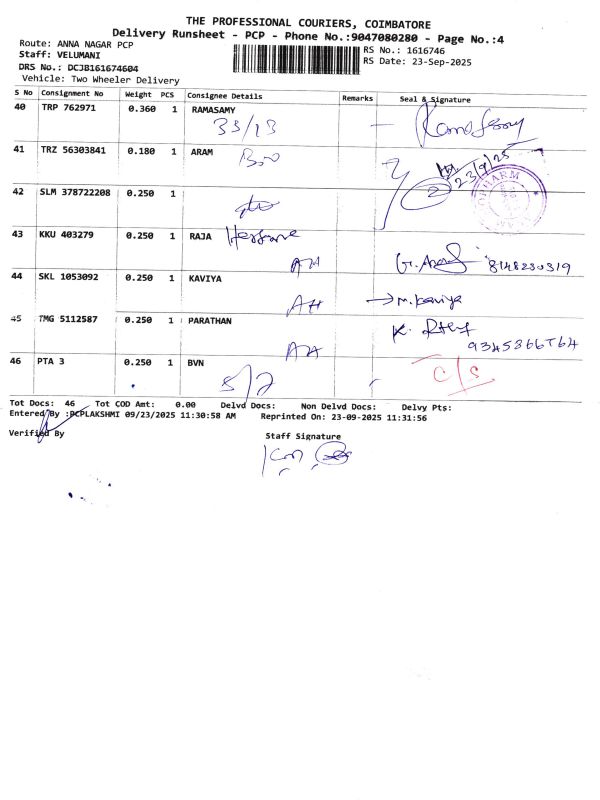 THE PROFESSIONAL COURIERS, COIMBATORE
Delivery Runsheet - PCP - Phone No.:9047080280 - Page No.:4
Route: ANNA NAGAR PCP
RS No.: 1616746
Staff: VELUMANI
RS Date: 23-Sep-2025
DRS No.: DCJB161674604
Vehicle: Two Wheeler Delivery
S No Consignment No Weight PCS Consignee Details Remarks Seal & Signature
40 TRP 762971 0.360 1 RAMASAMY
33/13
41 TRZ 56303841 0.180 1 ARAM
23/9/25
42 SLM 378722208 0.250 1
43 KKU 403279 0.250 1 RAJA
AH 8148230319
44 SKL 1053092 0.250 1 KAVIYA
AH M. Kaviya
45 TMG 5112587 0.250 1 PARATHAN
AH
46 PTA 3 0.250 1 BVN
5/2 C/S
Tot Docs: 46 Tot COD Amt: 0.00 Delvd Docs: Non Delvd Docs: Delvy Pts:
Entered By :PCPLAKSHMI 09/23/2025 11:30:58 AM Reprinted On: 23-09-2025 11:31:56
Verified By
Staff Signature